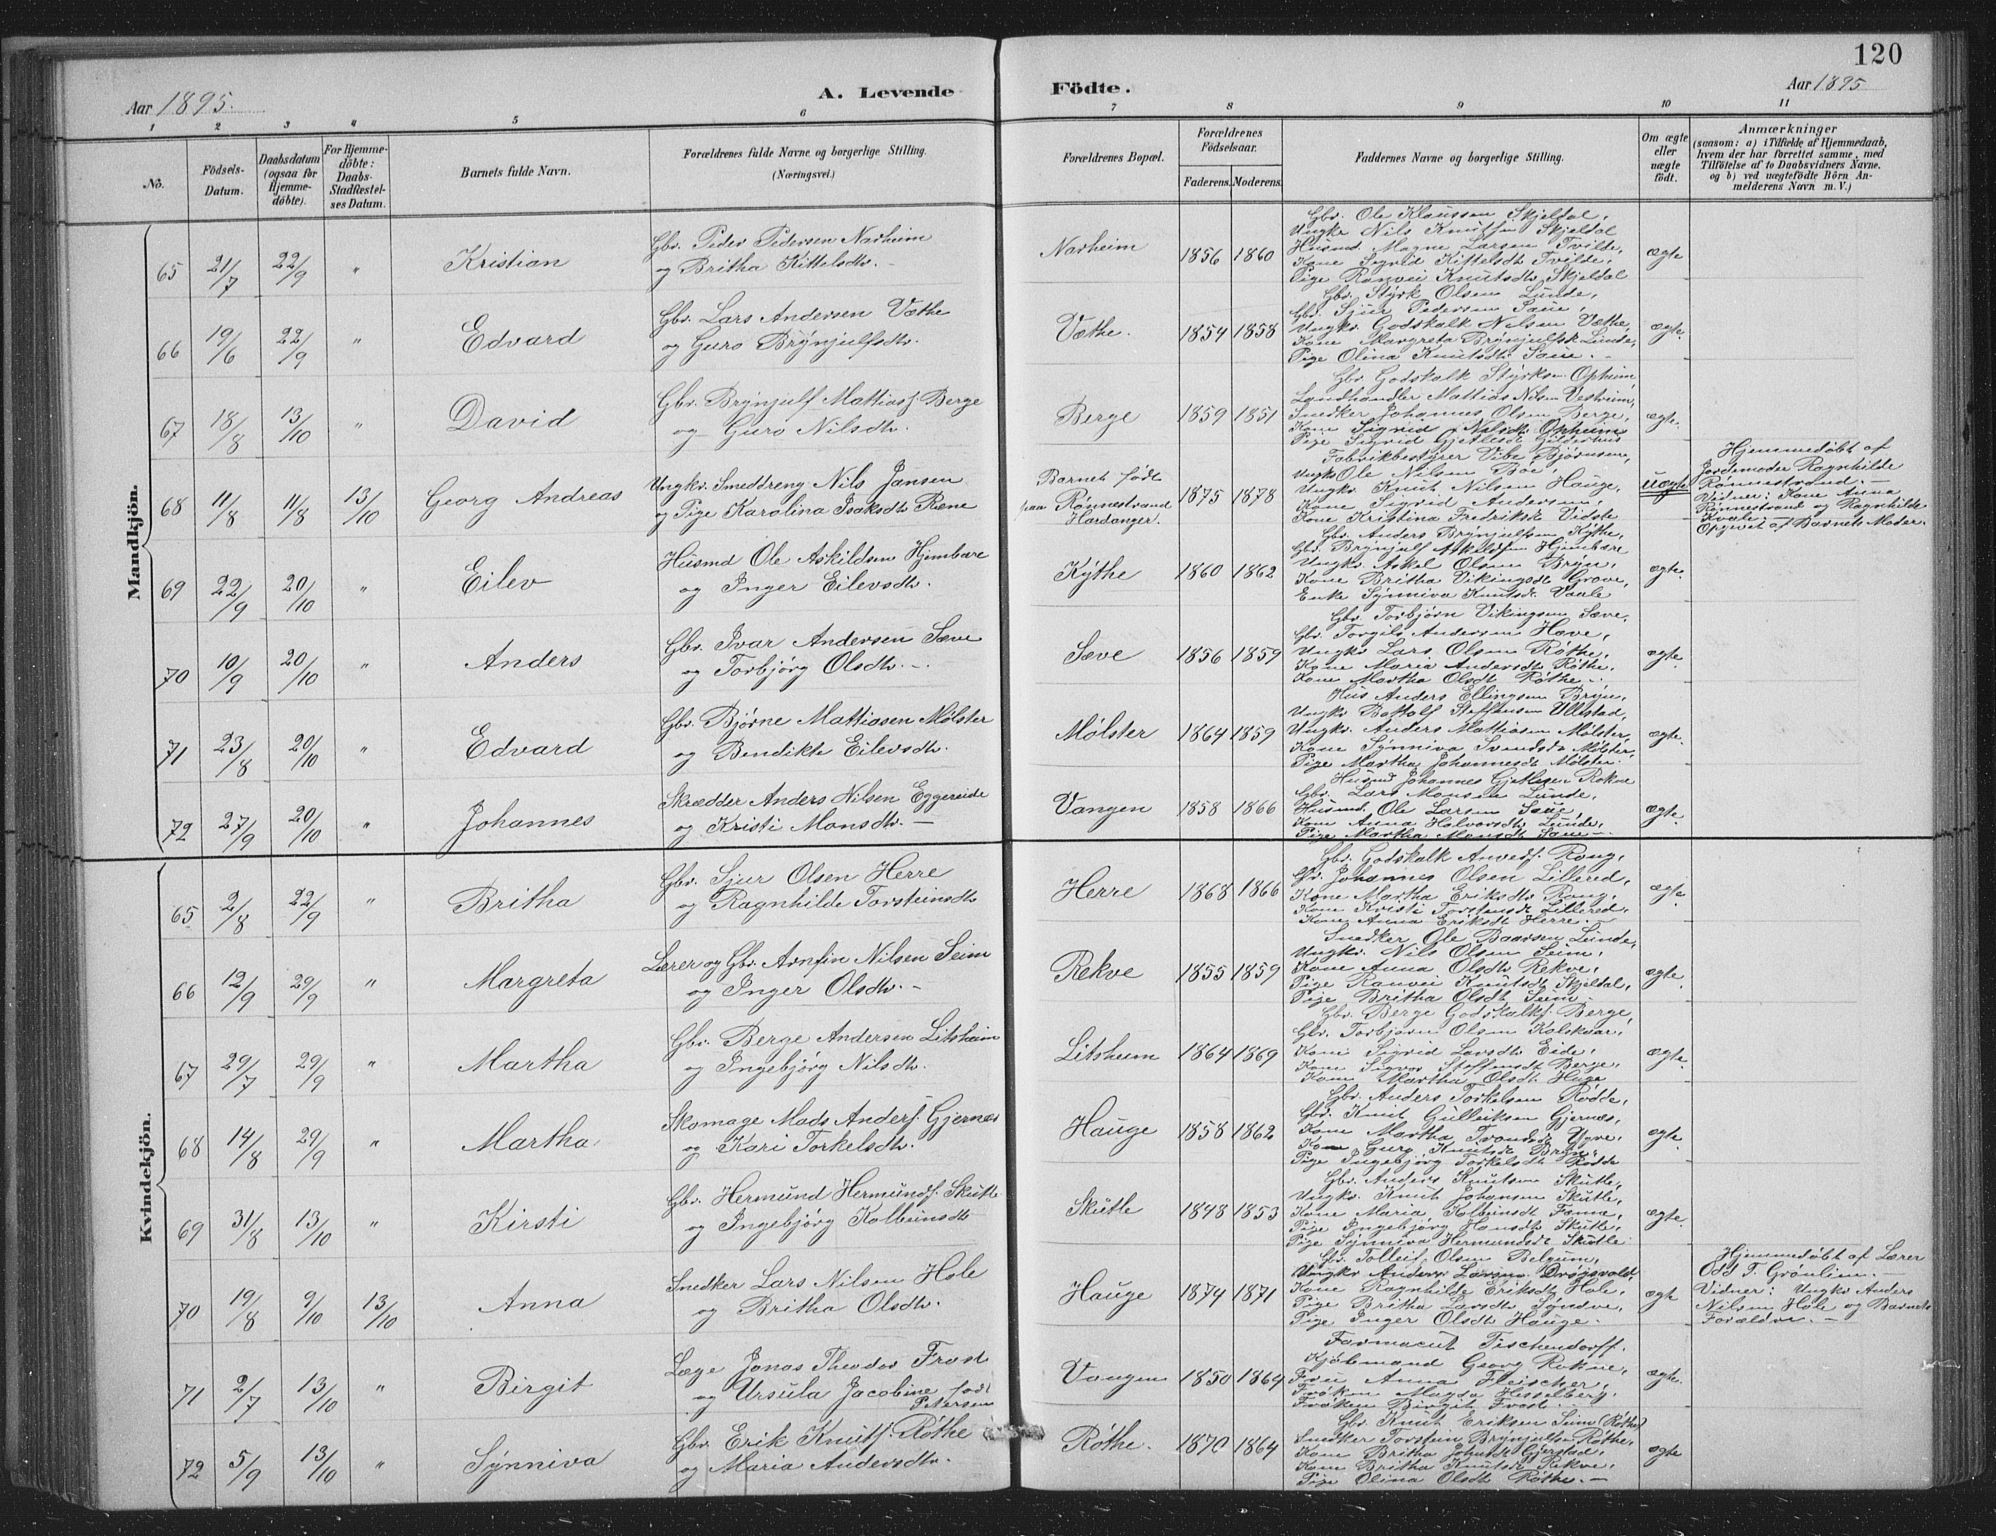 120
Aar 1895.
A. Levende Födte.
Aar 1895
1 2 3 4 5 6 7 8 9 10 11
No.
Födsels-Datum.
Daabsdatum (ogsaa for Hjemmedöbte).
For Hjemmedöbte: Daabs-Stadfæstelses Datum.
Barnets fulde Navn.
Forældrenes fulde Navne og borgerlige Stilling. (Næringsvei.)
Forældrenes Bopæl.
Forældrenes Födselsaar.
Faderens. Moderens.
Faddernes Navne og borgerlige Stilling.
Om ægte eller uægte födt.
Anmærkninger
(saasom: a) i Tilfælde af Hjemmedaab, hvem der har forrettet samme, med Tilföielse af to Daabsvidners Navne. og b) ved uægtefödte Börn Anmelderens Navn m. V.)
Mandkjön.
65 21/7 22/9 " Kristian
Gbr. Peder Pedersen Narheim
og Britha Kittelsdtr.
Narheim 1856 1860
Gbr. Ole Klaussen Skjeldal,
Ungkr Nils Knutsen Skjeldal
Husmd Magne Larsen Tvilde,
Kone Sigrid Kittelsdtr Tvilde,
Pige Ranvei Knutsdtr Skjeldal
ægte
66 19/6 22/9 " Edvard
Gbr. Lars Andersen Væthe
og Guro Brynjulfsdtr.
Væthe. 1854 1858
Gbr. Styrk Olsen Lunde,
Gbr. Sjur Pedersen Saue,
Ungkr. Godskalk Nilsen Væthe,
Kone Margreta Brynjulfsdt Lunde,
Pige Olina Knutsdtr Saue.
ægte.
67 18/8 13/10 " David
Gbr. Brynjulf Mattiasf. Berge
og Guro Nilsdtr.
Berge 1859 1851
Gbr Godskalk Styrksen Opheim
Landhandler Mattias Nilsen Vestreim,
Snedker Johannes Olsen Berge,
Kone Sigrid Nilsdtr Opheim
Pige Sigrid Gjetlesdt Gilderhus
ægte.
68 11/8 11/8 13/10 Georg Andreas
Ungkr. Smeddreng Nils Jansen
og Pige Karolina Isaksdtr Rene
Barnet født
paa Rønnestrand
Hardanger.
1875 1878
Fabrikbestyrer Vibe Bjørnsen,
Ungkr Ole Nilsen Bøe,
Ungkr. Knut Nilsen Hauge,
Kone Sigrid Andersen,
Kone Kristina Fredriksdt Vidste
uægte
Hjemmedøbt af
Jordemoder Ragnhilde
Rønnestrand.
Vidner: Kone Anna
Rønnestrand og Ragnhilde
Kvale.
Opgivet af Barnets Moder.
69 22/9 20/10 " Eilev
Husmd Ole Askildsen Hjembare
og Inger Eilevsdtr.
Kythe 1860 1862
Gbr. Anders Brynjulfsen Kythe,
Gbr. Brynjulf Askildsen Hjembare
Ungkr. Askel Olsen Bryn,
Kone Britha Vikingsdt Grove,
Enke Synniva Knutsdt Vaale
ægte.
70 10/9 20/10 " Anders
Gbr. Ivar Andersen Sæve
og Torbjørg Olsdtr.
Sæve 1856 1859
Gbr. Torbjørn Vikingsen Sæve,
Gbr. Torgils Andersen Hæve,
Ungkr Lars Olsen Røthe,
Kone Maria Andersdt Røthe,
Kone Martha Olsdt Røthe.
ægte.
71 23/8 20/10 " Edvard
Gbr. Bjørne Mattiasen Mølster
og Bendikte Eilevsdtr.
Mølster 1864 1859
Hus Anders Ellingsen Bryn,
Ungkr Bottolf Steffensen Ullestad,
Ungkr. Anders Mattiasen Mølster,
Kone Synniva Svendsdt Mølster,
Pige Martha Johannesdt Mølster.
ægte.
72 27/9 20/10 " Johannes
Skrædder Anders Nilsen Eggereide
og Kristi Monsdtr.
Vangen 1858 1866
Husmd Johannes Gjetlesen Rokne
Gbr. Lars Monsen Lunde,
Husmd. Ole Larsen Saue,
Kone Anna Halvorsdt Lunde,
Pige Martha Monsdt Saue
ægte.
Kvindekjön.
65 2/8 22/9 " Britha
Gbr. Sjur Olsen Herre
og Ragnhilde Torsteinsdtr
Herre 1868 1866
Gbr. Godskalk Arvedf. Rong,
Gbr. Johannes Olsen Lillered,
Kone Martha Eriksdtr Rong,
Kone Kristi Torstensdt Lillered,
Kone Anna Eriksdt Herre.
ægte.
66 12/9 29/9 " Margreta
Lærer og Gbr. Arnfin Nilsen Seim
og Inger Olsdtr.
Rekve 1855 1859
Snedker Ole Baarsen Lunde,
Ungkr. Nils Olsen Seim,
Kone Anna Olsdtr Rekve,
Pige Ranvei Knutsdt Skjeldal,
Pige Britha Olsdt Seim
ægte.
67 29/7 29/9 " Martha
Gbr. Berge Andersen Litsheim
og Ingebjørg Nilsdtr.
Litsheim 1864 1869
Gbr. Berge Godskalkf. Berge,
Gbr. Torbjørn Olsen Kolskaar,
Kone Sigrid Larsdtr Eide,
Kone Sigvor Steffensdt Berge,
Kone Martha Olsdt Haga
ægte.
68 14/8 29/9 " Martha
Skomage Mads Andersf. Gjernes
og Kari Torkelsdtr.
Hauge 1858 1862
Gbr. Anders Torkelsen Rødde,
Gbr. Knut Gulleiksen Gjernæs,
Kone Martha Trondsdt Ygre,
Kone Gurg Knutsdt Bryn,
Pige Ingebjørg Torkelsdt Rødde
ægte.
69 31/8 13/10 " Kirsti
Gbr. Hermund Hermundf. Skutle
og Ingebjørg Kolbeinsdtr
Skutle 1848 1853
Gbr. Anders Knutsen Skutle,
Ungkr. Knut Johansen Skutle,
Kone Maria Kolbeinsdt Fenne,
Pige Ingebjørg Hansdt Skutle,
Pige Synniva Hermundsdt Skutle.
ægte.
70 19/8 9/10 13/10 Anna
Snedker Lars Nilsen Hole
og Britha Olsdtr.
Hauge 1874 1871
Gbr. Tolleif Olsen Belgum,
Ungkr Anders Larsen Drøgsvold,
Kone Ragnhilde Eriksdt Hole,
Pige Britha Larsdt Tøndve,
Pige Inger Olsdt Hauge.
ægte
Hjemmedøbt af Lærer
Odd T. Grønlien.
Vidner: Ungkr Anders
Nilsen Hole og Barnets
Forældre.
71 2/7 13/10 " Birgit
Læge Jonas Theodor Frost
og Ursula Jacobine født
Petersen
Vangen 1850 1864
Farmaceut Tischendorff.
Kjøbmand Georg Rokne,
Frue Anna Fleischer,
Frøken Magda Hesselberg,
Frøken Birgit Frost.
ægte.
72 5/9 13/10 " Synniva
Gbr. Erik Knutf. Røthe
og Maria Andersdtr.
Røthe. 1870 1864
Gbr. Knut Eriksen Seim (Røthe)
Snedker Torstein Brynjulfsen Røthe,
Kone Britha Johansdt Gjerstad,
Kone Britha Knutsdt Rekve,
Pige Olina Olsdt Røthe.
ægte